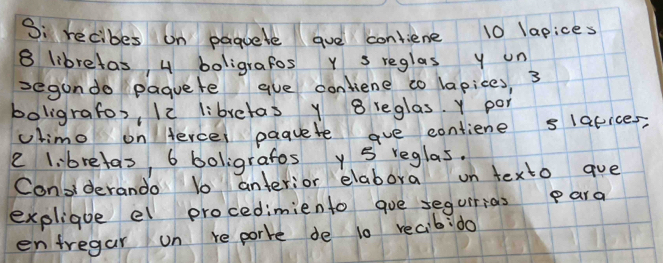 Si recibes un paquete que contiene 10 lapices
8 libretas, 4 boligrafos y 3 reglas y un
segundo paquete que contiene 20 lapices, 3
boligrafos, 12 libretas y 8 reglas. y por
utimo un tercer paquete que contiene 5 lapices,
2 libretas, 6 boligrafos y 5 reglas.
Considerando lo anterior elabora un texto que
explique el procedimiento que seguirias para
entregar un reporte de lo recibido